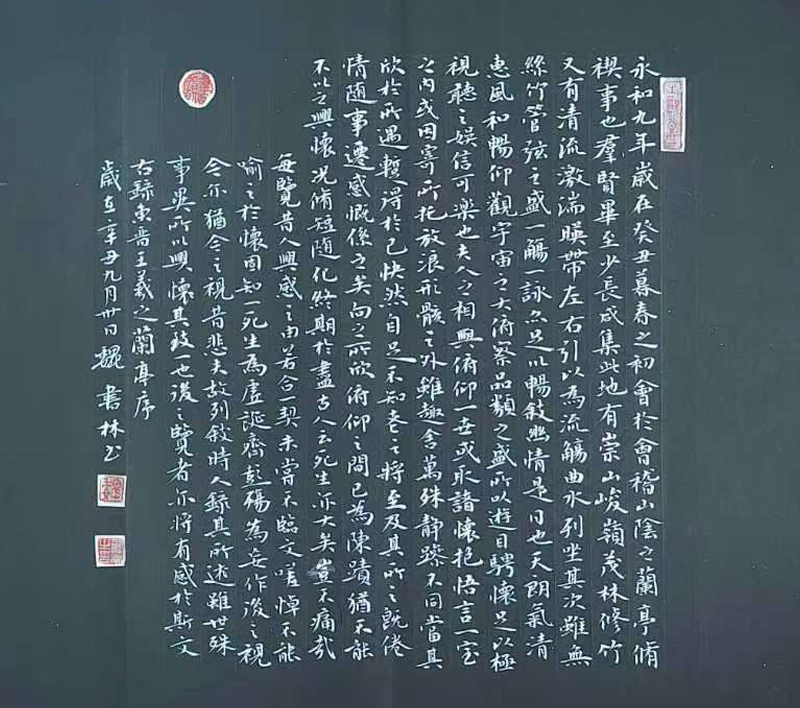 永和九年歲在癸丑暮春之初會於會稽山陰之蘭亭脩
禊事也羣賢畢至少長咸集此地有崇山峻嶺茂林修竹
又有清流激湍暎帶左右引以為流觴曲水列坐其次雖無
絲竹管弦之盛一觴一詠亦足以暢敘幽情是日也天朗氣清
惠風和暢仰觀宇宙之大俯察品類之盛所以遊目騁懷足以極
視聽之娛信可樂也夫人之相與俯仰一世或取諸懷抱悟言一室
之內或因寄所托放浪形骸之外雖趣舍萬殊静躁不同當其
欣於所遇暫得於己快然自足不知老之將至及其所之既倦
情隨事遷感慨係之矣向之所欣俯仰之間已為陳蹟猶不能
不以之興懷況脩短隨化終期於盡古人云死生亦大矣豈不痛哉
每覽昔人興感之由若合一契未嘗不臨文嗟悼不能
喻之於懷固知一死生為虛誕齊彭殤為妄作後之視
今亦猶今之視昔悲夫故列敘時人錄其所述雖世殊
事異所以興懷其致一也後之覽者亦將有感於斯文
右錄東晉王羲之蘭亭序
歲在辛丑九月卅日魏書林書